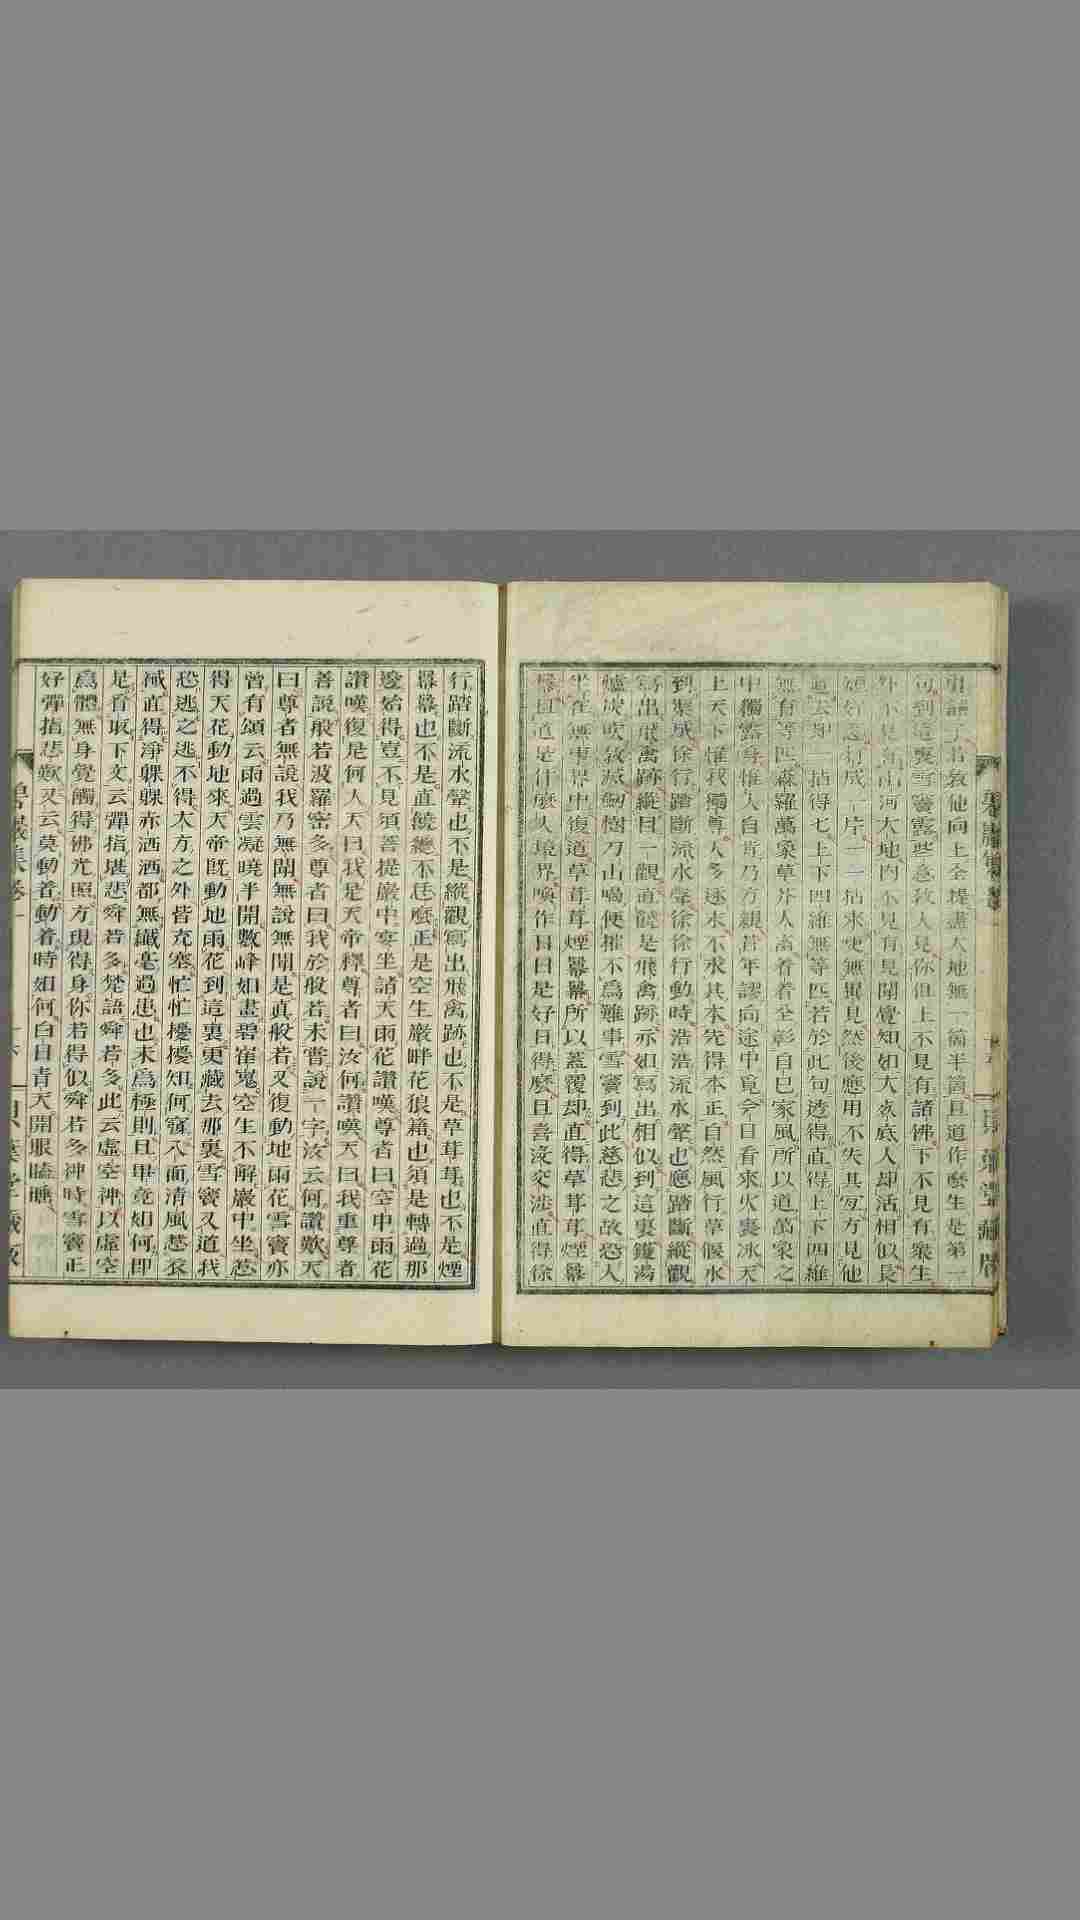 可到這裏雪竇露些意教人見你但上不見有諸佛下不見有衆生
外不見有山河大地內不見有見聞覺知如大死底人却活相似長
短好惡打成一片一一拈來更無異見然後應用不失其宜方見他
道去却一拈得七上下四維無等匹若於此句透得直得上下四維
無有等匹森羅萬象草芥人畜着着全彰自己家風所以道萬象之
中獨露身惟人自肯乃方親昔年謬向途中覓今日看來火裏冰天
上天下惟我獨尊人多逐末不求其本先得本正自然風行草偃水
到渠成徐行踏斷流水聲徐徐行動時浩浩流水聲也應踏斷縱觀
寫出飛禽跡縱目一觀直饒是飛禽跡亦如寫出相似到這裏鑊湯
爐炭吹敎滅劒樹刀山喝便摧不爲難事雪竇到此慈悲之故恐人
坐在無事界中復道草茸茸煙羃羃所以蓋覆却直得草茸茸煙羃
羃且道是什麼人境界喚作日日是好日得麼且喜沒交渉直得徐
行踏斷流水聲也不是縱觀寫出飛禽跡也不是草茸茸也不是煙
羃羃也不是直饒總不恁麼正是空生巖畔花狼籍也須是轉過那
邊始得豈不見須菩提巖中宴坐諸天雨花讃嘆尊者曰空中雨花
讃嘆復是何人天曰我是天帝釋尊者曰汝何讃嘆天曰我重尊者
善說般若波羅密多尊者曰我於般若未嘗說一字汝云何讃歎天
曰尊者無說我乃無聞無說無聞是眞般若又復動地雨花雪竇亦
曾有頌云雨過雲凝曉半開數峰如畫碧崔嵬空生不解巖中坐惹
得天花動地來天帝旣動地雨花到這裏更藏去那裏雪竇又道我
恐逃之逃不得大方之外皆充塞忙忙擾擾知何窮八面淸風惹衣
裓直得淨躶躶赤洒洒都無纎毫過患也未爲極則且畢竟如何即
是看取下文云彈指堪悲舜若多梵語舜若多此云虛空神以虛空
爲體無身覺觸得佛光照方現得身你若得似舜若多神時雪竇正
好彈指悲歎又云莫動着動着時如何白日靑天開眼瞌睡
碧巖集卷一